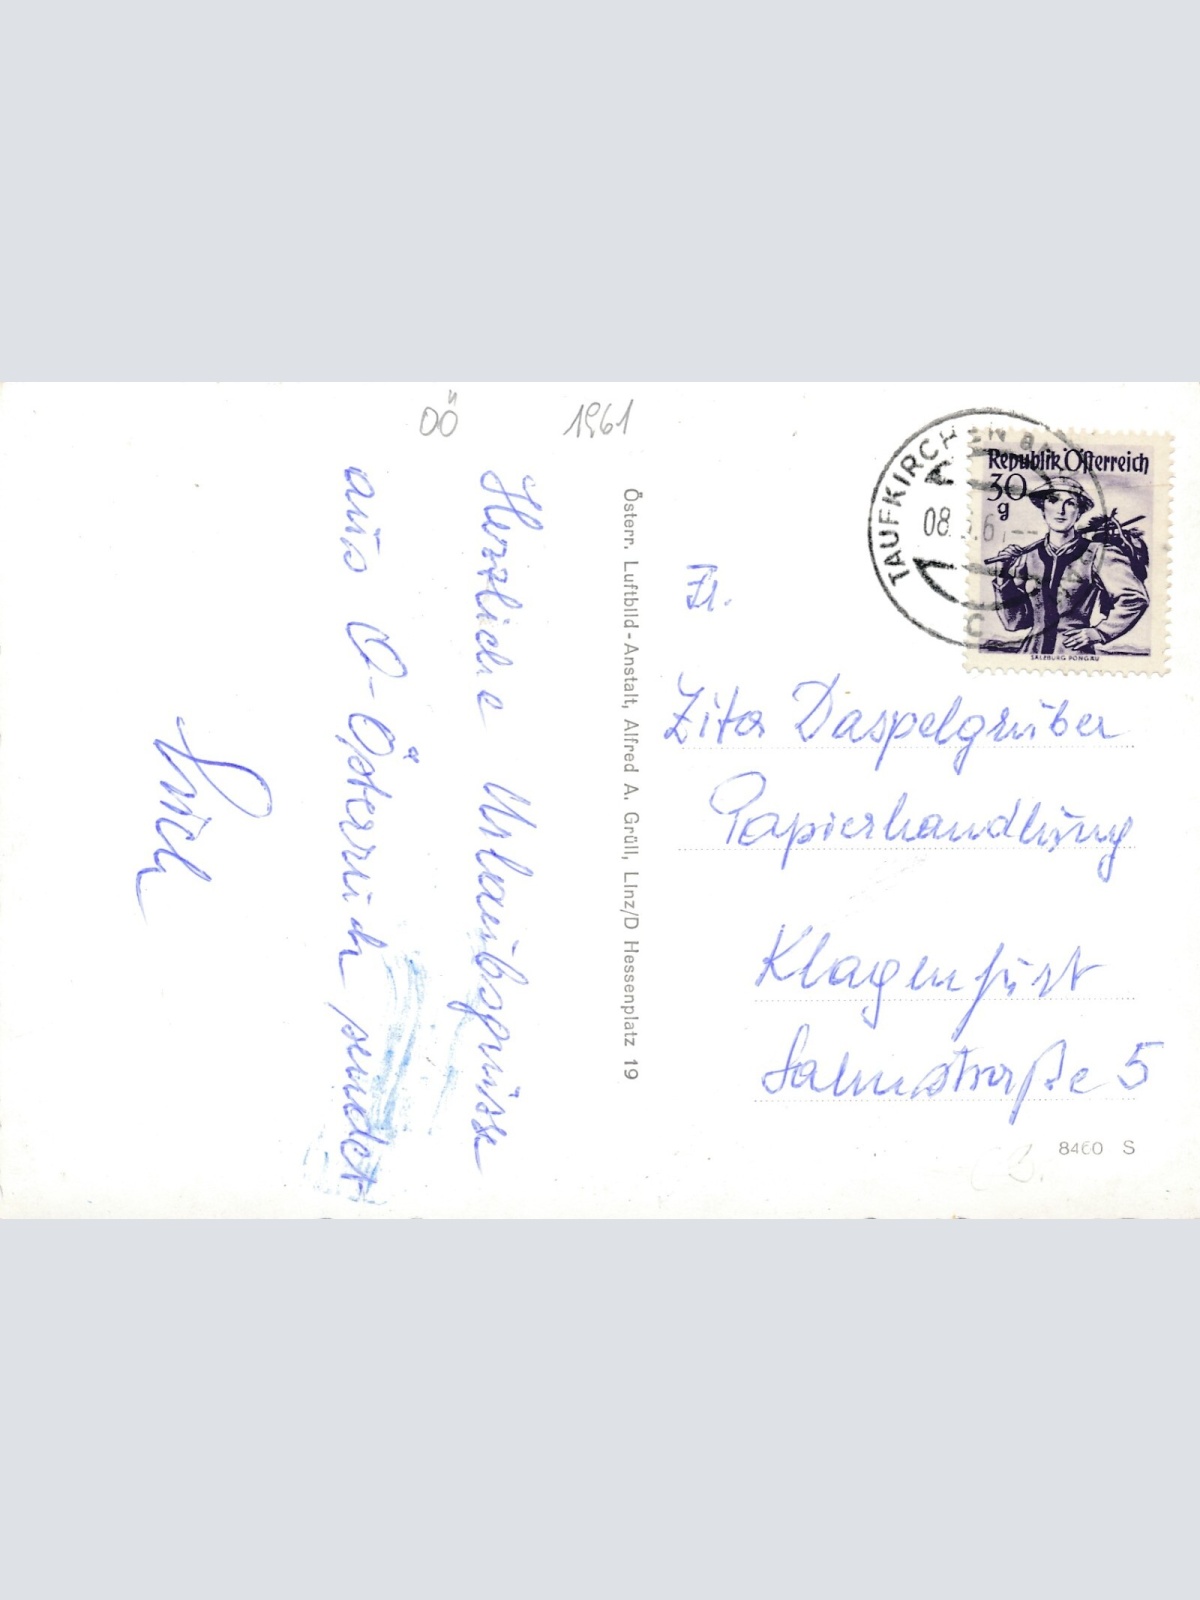 OÖ
1961
Herzliche Urlaubsgrüsse
aus O-Österreich sendet
Österr. Luftbild-Anstalt, Alfred A. Grüll, Linz/D Hessenplatz 19
TAUFKIRCHEN
08. 6
Republik Österreich
30
g
SALZBURG PONGAU
Fr.
Zita Daspelgruber
Papierhandlung
Klagenfurt
Salmstraße 5
8460 S